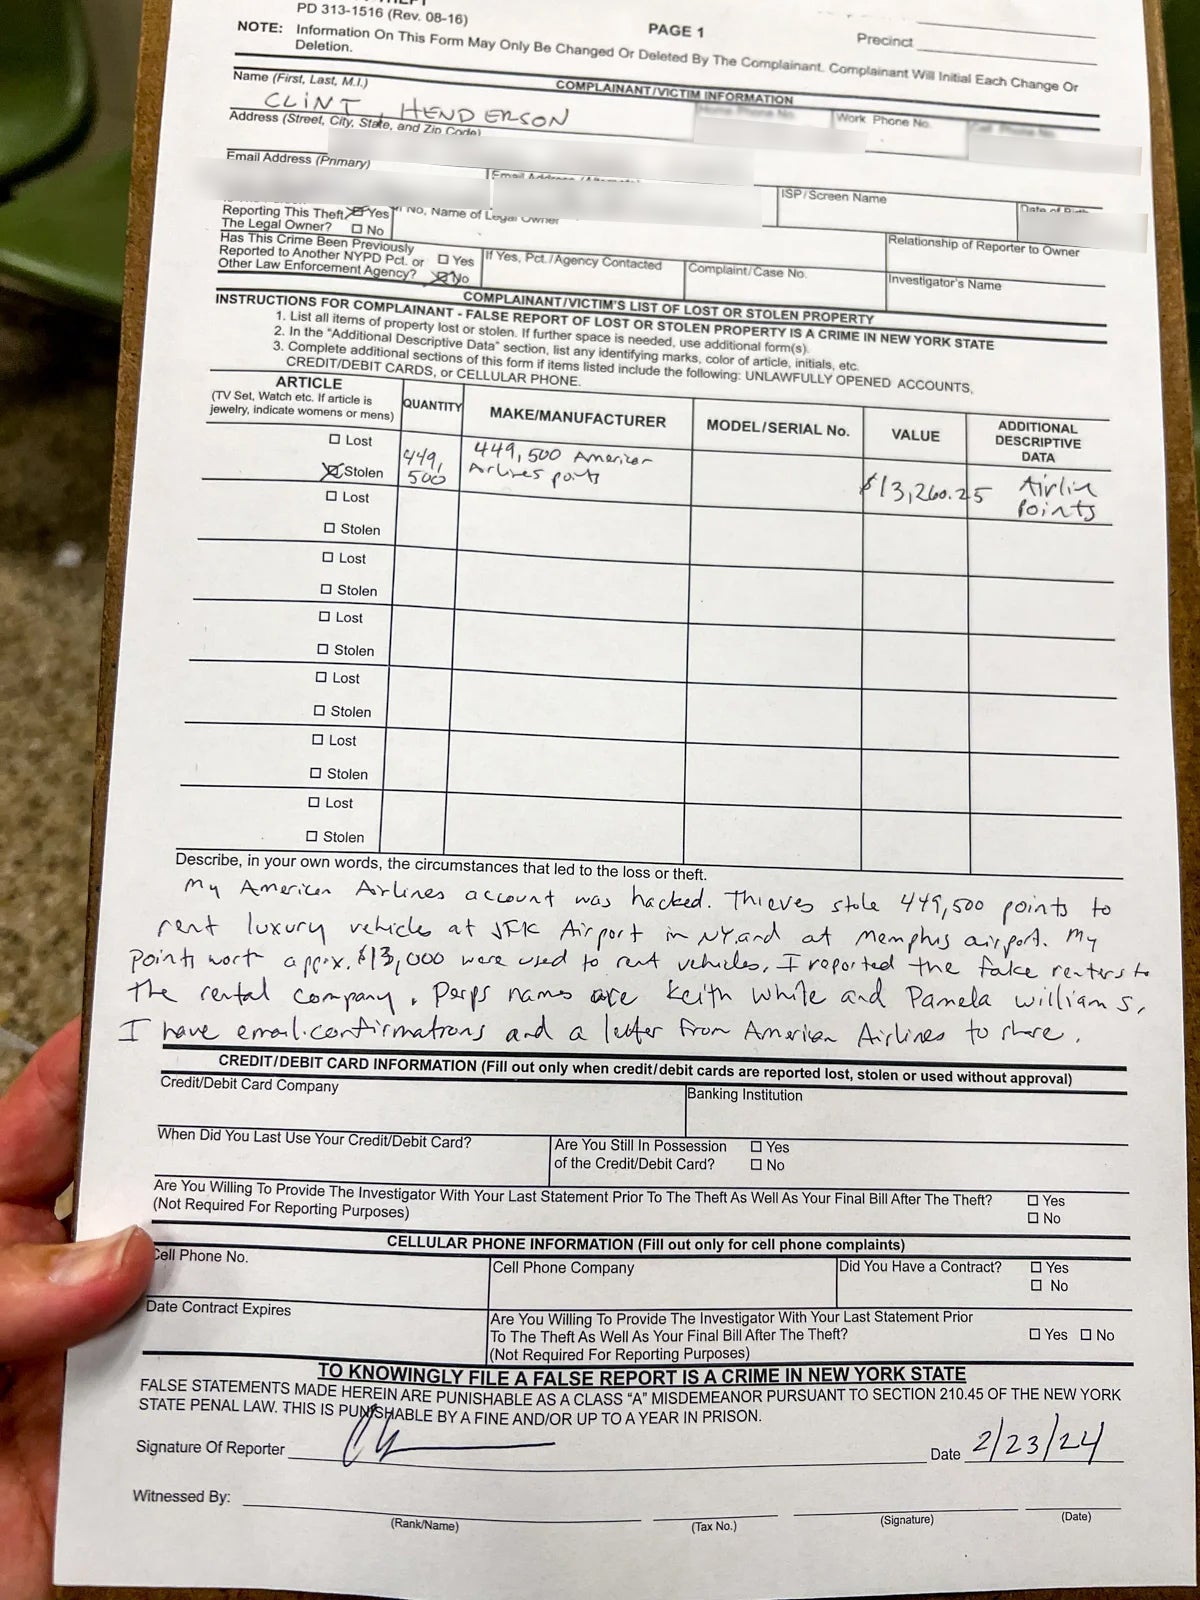 PD 313-1516 (Rev. 08-16)
PAGE 1
Precinct
NOTE: Information On This Form May Only Be Changed Or Deleted By The Complainant. Complainant Will Initial Each Change Or
Deletion.
COMPLAINANT/VICTIM INFORMATION
Name (First, Last, M.I.)
CLINT HENDERSON
Work Phone No.
Address (Street, City, State, and Zip Code)
Email Address (Primary)
ISP/Screen Name
Reporting This Theft Yes
The Legal Owner? ☐ No
No, Name of Legal Owner
Relationship of Reporter to Owner
Has This Crime Been Previously
Reported to Another NYPD Pct. or ☐ Yes
Other Law Enforcement Agency? No
If Yes, Pct./Agency Contacted
Complaint/Case No.
Investigator's Name
COMPLAINANT/VICTIM'S LIST OF LOST OR STOLEN PROPERTY
INSTRUCTIONS FOR COMPLAINANT - FALSE REPORT OF LOST OR STOLEN PROPERTY IS A CRIME IN NEW YORK STATE
1. List all items of property lost or stolen. If further space is needed, use additional form(s).
2. In the "Additional Descriptive Data" section, list any identifying marks, color of article, initials, etc.
3. Complete additional sections of this form if items listed include the following: UNLAWFULLY OPENED ACCOUNTS,
CREDIT/DEBIT CARDS, or CELLULAR PHONE.
ARTICLE
(TV Set, Watch etc. If article is
jewelry, indicate womens or mens)
QUANTITY
MAKE/MANUFACTURER
MODEL/SERIAL No.
VALUE
ADDITIONAL
DESCRIPTIVE
DATA
☐ Lost
Stolen
449,
500
449,500 American
Airlines points
$13,260.25
Airlin
points
☐ Lost
☐ Stolen
☐ Lost
☐ Stolen
☐ Lost
☐ Stolen
☐ Lost
☐ Stolen
☐ Lost
☐ Stolen
☐ Lost
☐ Stolen
Describe, in your own words, the circumstances that led to the loss or theft.
My American Airlines account was hacked. Thieves stole 449,500 points to
rent luxury vehicles at JFK Airport in NY and at Memphis airport. My
points worth appx. $13,000 were used to rent vehicles. I reported the fake renters to
the rental company. Perps names are Keith White and Pamela Williams.
I have email confirmations and a letter from American Airlines to share.
CREDIT/DEBIT CARD INFORMATION (Fill out only when credit/debit cards are reported lost, stolen or used without approval)
Credit/Debit Card Company
Banking Institution
When Did You Last Use Your Credit/Debit Card?
Are You Still In Possession ☐ Yes
of the Credit/Debit Card? ☐ No
Are You Willing To Provide The Investigator With Your Last Statement Prior To The Theft As Well As Your Final Bill After The Theft? ☐ Yes
(Not Required For Reporting Purposes) ☐ No
CELLULAR PHONE INFORMATION (Fill out only for cell phone complaints)
Cell Phone No.
Cell Phone Company
Did You Have a Contract? ☐ Yes
☐ No
Date Contract Expires
Are You Willing To Provide The Investigator With Your Last Statement Prior
To The Theft As Well As Your Final Bill After The Theft? ☐ Yes ☐ No
(Not Required For Reporting Purposes)
TO KNOWINGLY FILE A FALSE REPORT IS A CRIME IN NEW YORK STATE
FALSE STATEMENTS MADE HEREIN ARE PUNISHABLE AS A CLASS "A" MISDEMEANOR PURSUANT TO SECTION 210.45 OF THE NEW YORK
STATE PENAL LAW. THIS IS PUNISHABLE BY A FINE AND/OR UP TO A YEAR IN PRISON.
Signature Of Reporter
Date 2/23/24
Witnessed By:
(Rank/Name)
(Tax No.)
(Signature)
(Date)